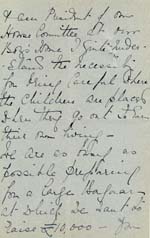 I am President of our
Home Committee at our
Boys Home I quite under-
-stand the necessity
for being careful where
the children are placed
when they go out to earn
their own living -
We are as busy as
possible preparing
for a large Bazaar -
at which we want to
raise £10,000 -